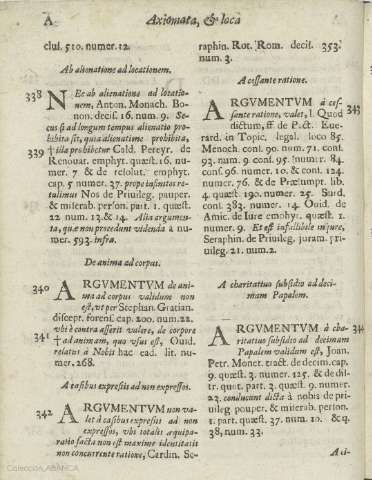 A
Axiomata, & loca
clus. 510. numer. 12.
Ab alienatione ad locationem.
338
NEc ab alienatione ad locatio-
nem, Anton. Monach. Bo-
non. decis. 16. num. 9. Se-
cus si ad longum tempus alienatio pro-
hibita sit, quia alienatione prohibita
339
† illa prohibetur Cald. Pereyr. de
Renouat. emphyt. quæst. 16. nu-
mer. 7 & de resolut. emphyt.
cap. 5 numer. 37. prope infinitos re-
tulimus Nos de Priuileg. pauper.
& miserab. person. part. 1. quæst.
22 num 13. & 14. Alia argumen-
ta, quæ non procedunt videnda à nu-
mer. 593. infra.
De anima ad corpus.
340
ARGVMENTVM de ani-
ma ad corpus validum non
est, vt per Stephan. Gratian.
discept. forens. cap. 200. num. 22.
vbi è contra asserit valere, de corpore
341
† ad animam, quo vsus est, Ouid.
relatus à Nobis hac ead. lit. nu-
mer. 268.
A casibus expressis ad non expressos.
342
ARGVMENTVM non va-
let à casibus expressis ad non
expressos, vbi totalis æquipa-
ratio facta non est maxime identitatis
non concurrente ratione, Cardin. Se-
raphin. Rot. Rom. decis. 353.
num. 3.
A cessante ratione.
343
ARGVMENTVM à ces-
sante ratione, valet, l. Quod
dictum, ff. de Pact. Eue-
rard. in Topic. legal. loco 85.
Menoch. cons. 90. num. 71. cons.
93. num. 9. cons. 95. numer. 84.
cons. 96. numer. 10. & cons. 124.
numer. 76. & de Præsumpt. lib.
4. quæst. 190. numer. 27. Surd.
cons. 383. numer. 14. Ouid. de
Amic. de Iure emohyt. quæst. 1.
numer. 9. Et est infallibile in iure,
Seraphin. de Priuileg. iuram. pri-
uileg. 21. num. 2.
A charitatiuo subsidio ad deci-
mam Papalem.
344
ARGVMENTVM à cha-
ritatiuo subsidio ad decimam
Papalem validum est, Joan.
Petr. Monet. tract. de decim. cap.
9. quæst. 3. numer. 125. & de dis-
tr. quot. part. 3. quæst. 9. numer.
22. conducunt dicta à nobis de pri-
uileg pouper. & miserab. person.
1. part. quæst. 37. num. 10. & q.
38. num. 33.
A ci-
Colección ABANCA